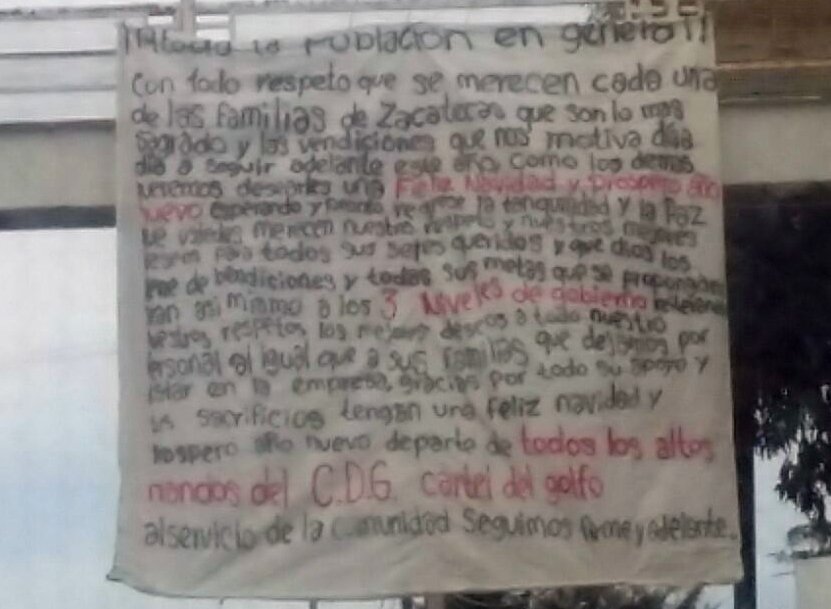 la población en general!!
Con todo respeto que se merecen cada una
de las familias de Zacatecas que son lo mas
sagrado y las vendiciones que nos motiva dia
dia a seguir adelante este año como los demas
queremos desearles una Feliz Navidad y prospero año
nuevo esperando y regrese la tanquilidad y la Paz
merecen nuestro respeto y nuestros mejores
para todos sus seres queridos y que dios los
de bendiciones y todas sus metas que se propongan
asi mismo a los 3 Niveles de gobierno
respetos los mejores deseos a todo nuestro
personal al igual que a sus familias que dejamos por
estar en la empresa, gracias por todo su apoyo y
sus sacrificios tengan una feliz navidad y
prospero año nuevo departe de todos los altos
mandos del C.D.G. cartel del golfo
al servicio de la comunidad Seguimos firme y adelante.